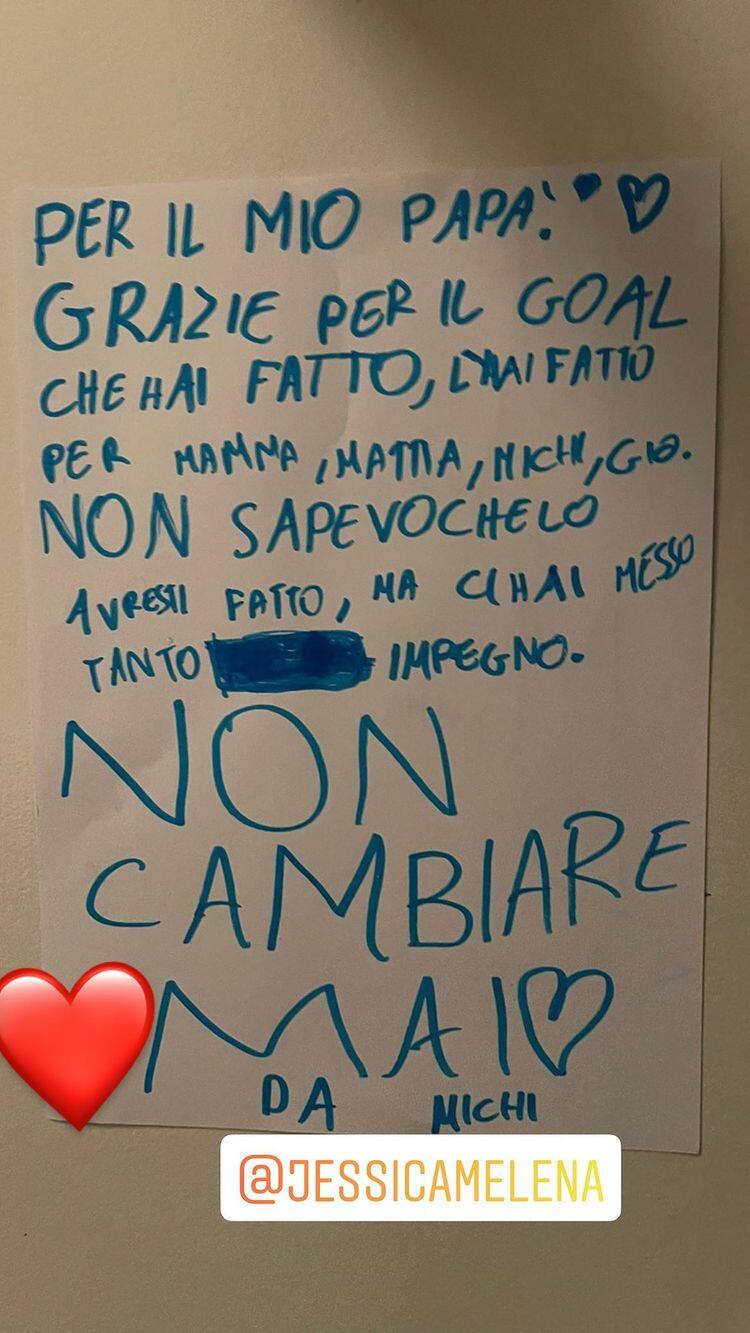 PER IL MIO PAPA'.
GRAZIE PER IL GOAL
CHE HAI FATTO, L'HAI FATTO
PER MAMMA, MATTIA, MICHI, GIO.
NON SAPEVOCHELO
AVRESTI FATTO, MA CI HAI MESSO
TANTO IMPEGNO.
NON
CAMBIARE
MAI
DA MICHI
@JESSICAMELENA